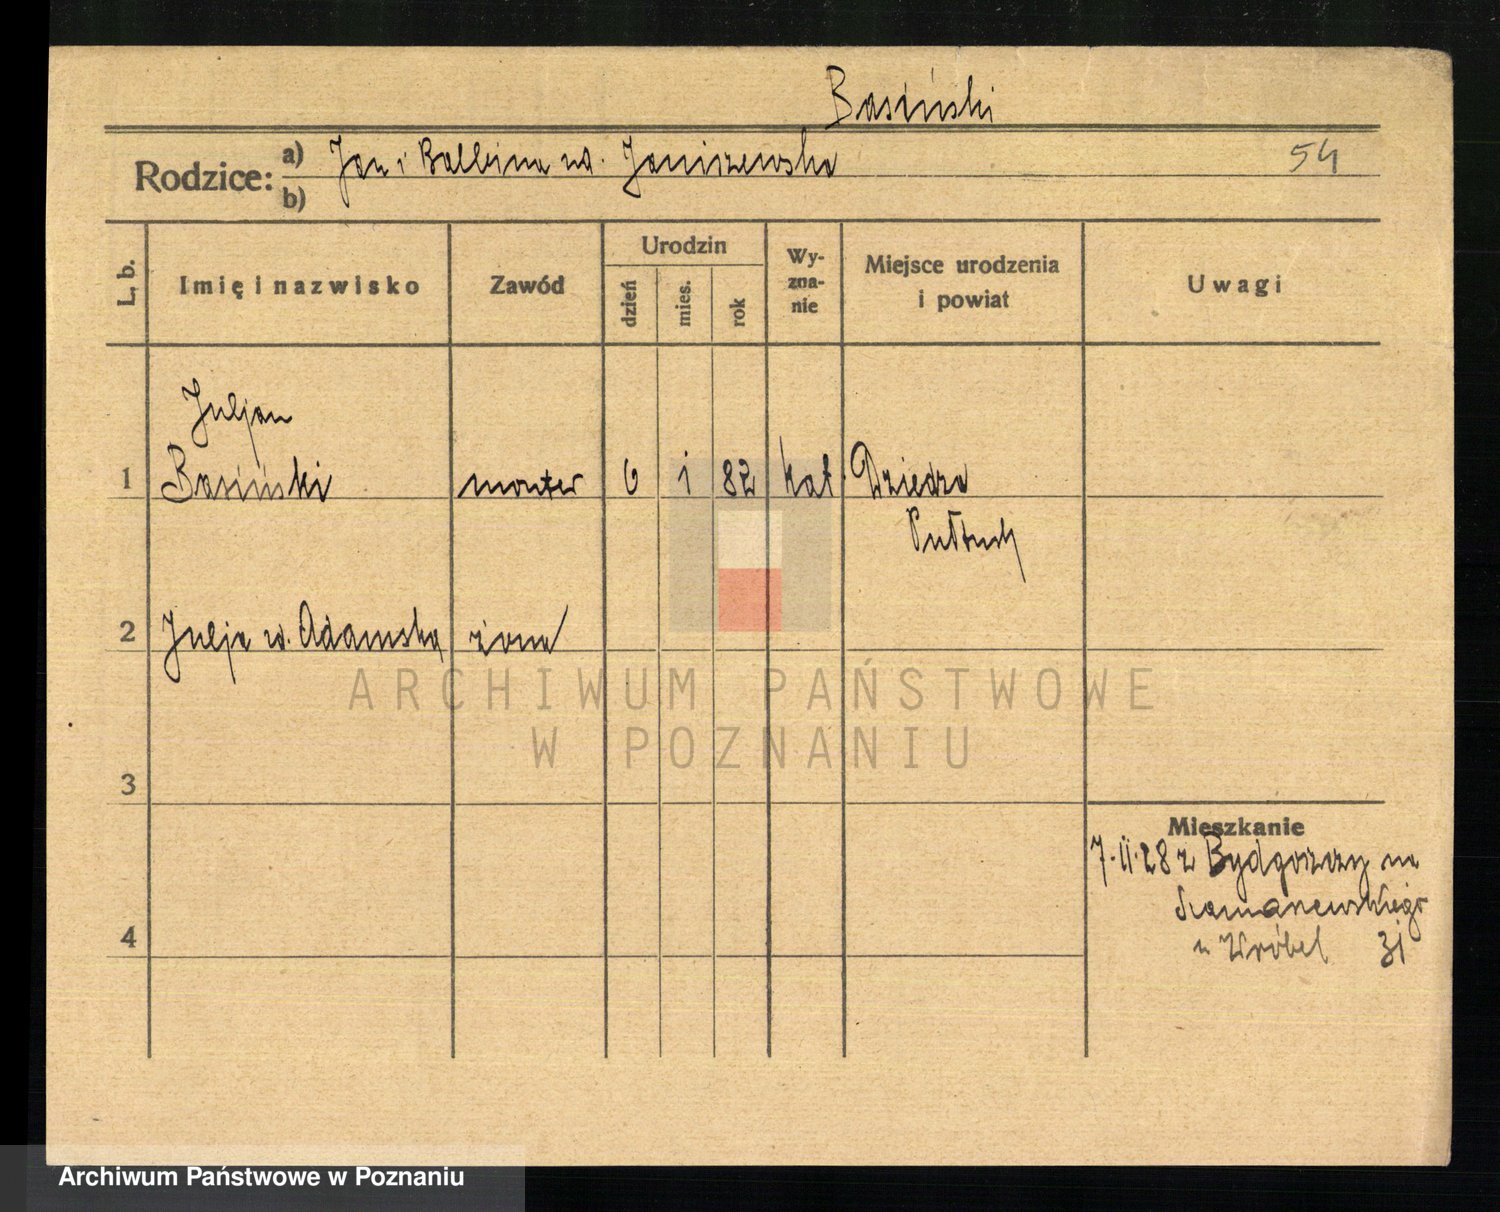 Basiński
Rodzice: a) Jan i Balbina ur. Janiszewska
54
b)
L. b. Imię i nazwisko Zawód Urodzin dzień mies. rok Wyznanie Miejsce urodzenia i powiat Uwagi
Juljan
1 Basiński monter 6 1 82 kat. Dziedza
Pułtusk
2 Julja ur. Adamska żona
ARCHIWUM PAŃSTWOWE
W POZNANIU
3
Mieszkanie
7.II.28 z Bydgoszczy na
u Wróbel 31
4
Archiwum Państwowe w Poznaniu